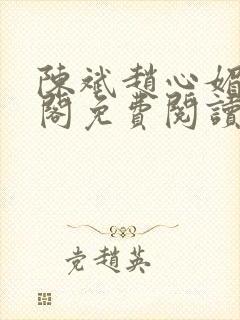 陳斌趙心媚
閣免費閱讀
党趙英